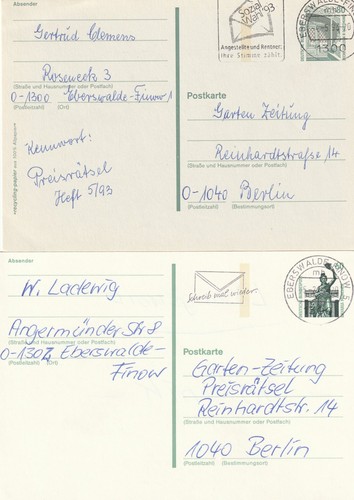 Absender
Gertrud Clemens
Roseneck 3
(Straße und Hausnummer oder Postfach)
O-1300 Eberswalde-Finow 1
(Postleitzahl) (Ort)
Kennwort:
Preisrätsel
Heft 5/93
Sozial
Wahl 93
Angestellte und Rentner:
Ihre Stimme zählt.
EBERSWALDE-FIN
1300
Postkarte
Garten Zeitung
Reinhardtstraße 14
(Straße und Hausnummer oder Postfach)
O-1040 Berlin
(Postleitzahl) (Bestimmungsort)
Absender
W. Ladewig
Angermünder Str 8
(Straße und Hausnummer oder Postfach)
O-1302 Eberswalde-
(Postleitzahl) (Ort)
Finow
Schreib mal wieder.
EBERSWALDE-FINOW
Postkarte
Garten-Zeitung
Preisrätsel
Reinhardtstr. 14
(Straße und Hausnummer oder Postfach)
1040 Berlin
(Postleitzahl) (Bestimmungsort)